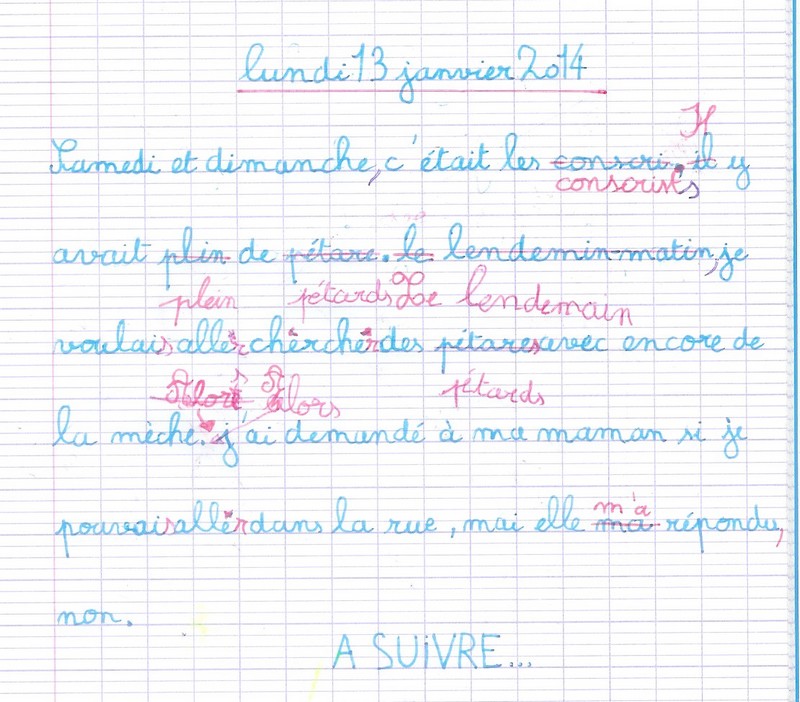 lundi 13 janvier 2014
Il
Samedi et dimanche, c'était les conscri. il y
conscrits
avait plin de pétare. le lendemin matin, je
plein pétards Le lendemain
voulais aller chercher des pétares avec encore de
Alors Alors pétards
la mèche. j'ai demandé à ma maman si je
m'a
pouvais aller dans la rue, mai elle ma répondu,
non.
A SUiVRE...